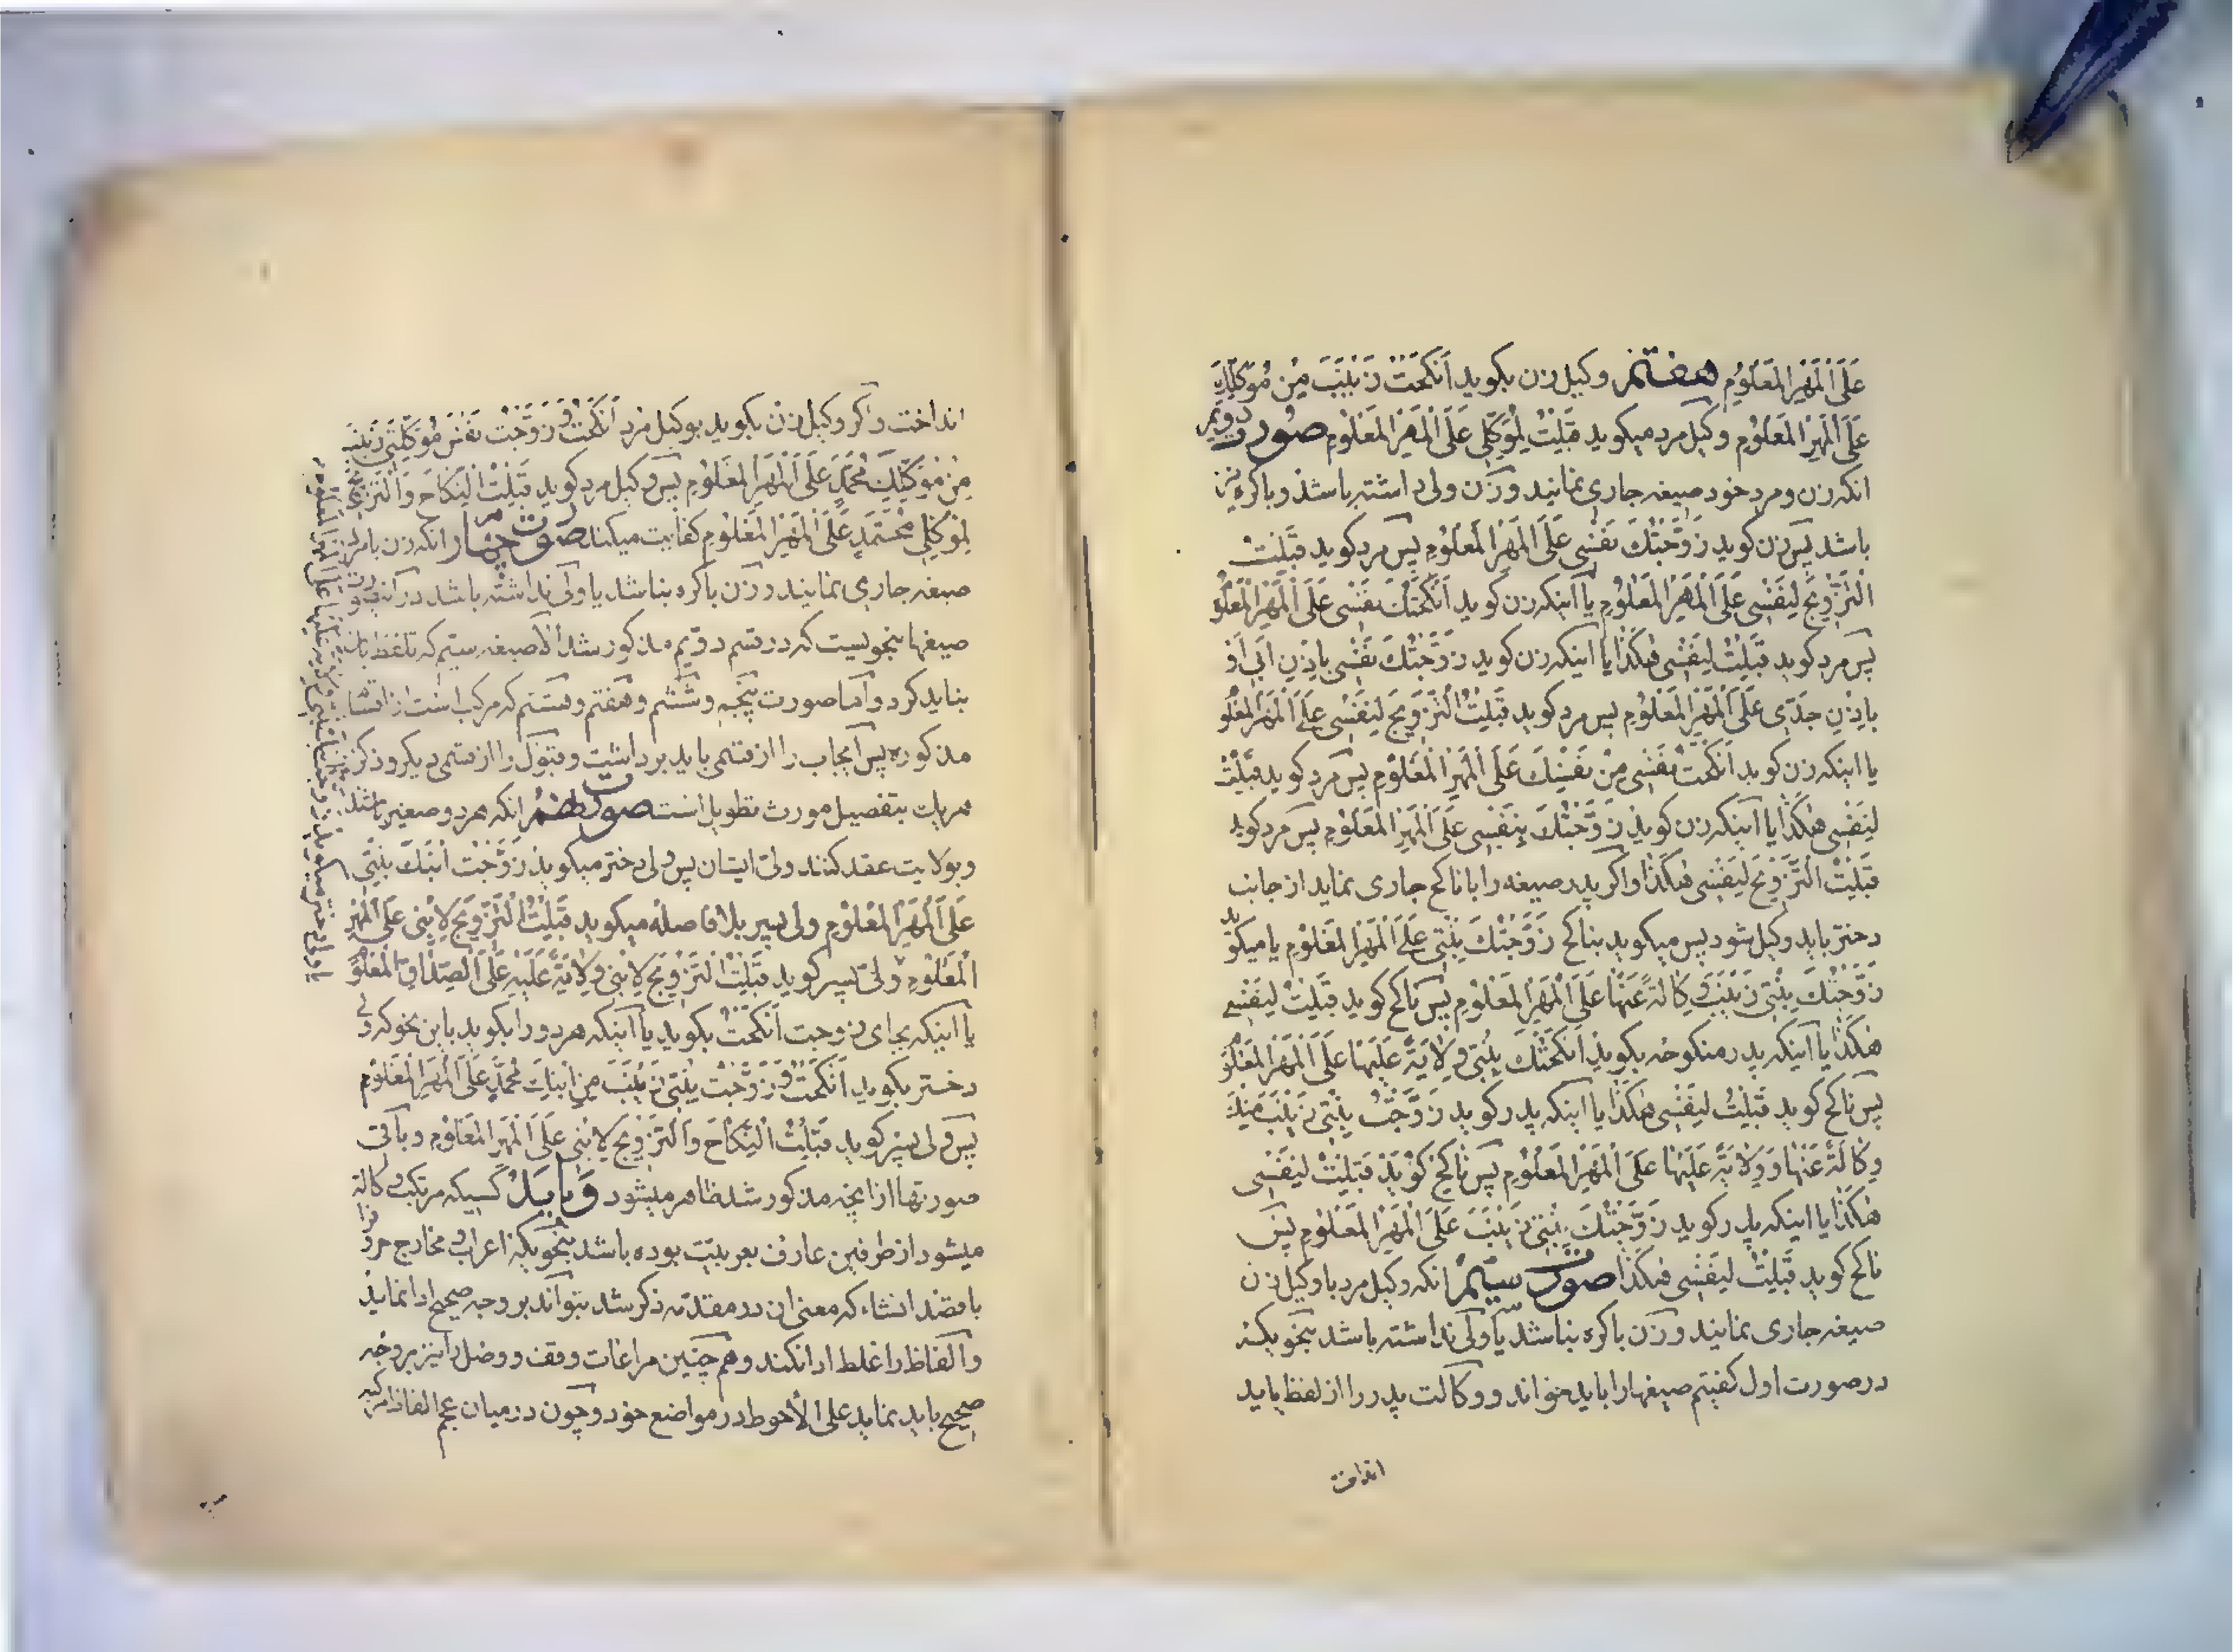 عَلَی الْمَهْرِ الْمَعْلُومِ هفتم وکیل زن بکوید اَنْکَحْتُ زَیْنَبَ مِنْ مُوَکِّلِکَ
عَلَی الْمَهْرِ الْمَعْلُومِ وکیل مرد میکوید قَبِلْتُ لِمُوَکِّلِی عَلَی الْمَهْرِ الْمَعْلُومِ صورت دویم
انکه زن و مرد خود صیغه جاری نمایند و زن ولی داشته باشد و باکره نیز
باشد پس زن کوید زَوَّجْتُکَ نَفْسِی عَلَی الْمَهْرِ الْمَعْلُومِ پس مرد کوید قَبِلْتُ
الْتَّزْوِیجَ لِنَفْسِی عَلَی الْمَهْرِ الْمَعْلُومِ یا اینکه زن کوید اَنْکَحْتُکَ نَفْسِی عَلَی الْمَهْرِ الْمَعْلُو
پس مرد کوید قَبِلْتُ لِنَفْسِی هٰکَذَا یا اینکه زن کوید زَوَّجْتُکَ نَفْسِی بِاِذْنِ اَبِی اَوْ
بِاِذْنِ جَدِّی عَلَی الْمَهْرِ الْمَعْلُومِ پس مرد کوید قَبِلْتُ الْتَّزْوِیجَ لِنَفْسِی عَلَی الْمَهْرِ الْمَعْلُو
یا اینکه زن کوید اَنْکَحْتُ نَفْسِی مِنْ نَفْسِکَ عَلَی الْمَهْرِ الْمَعْلُومِ پس مرد کوید قَبِلْتُ
لِنَفْسِی هٰکَذَا یا اینکه زن کوید زَوَّجْتُکَ بِنَفْسِی عَلَی الْمَهْرِ الْمَعْلُومِ پس مرد کوید
قَبِلْتُ الْتَّزْوِیجَ لِنَفْسِی هٰکَذَا و اکر پدر صیغه را با ناکح جاری نماید از جانب
دختر باید وکیل شود پس میکوید بناکح زَوَّجْتُکَ بِنْتِی عَلَی الْمَهْرِ الْمَعْلُومِ یا میکوید
زَوَّجْتُکَ بِنْتِی زَیْنَبَ وِکَالَةً عَنْهَا عَلَی الْمَهْرِ الْمَعْلُومِ پس ناکح کوید قَبِلْتُ لِنَفْسِی
هٰکَذَا یا اینکه پدر منکوحه بکوید اَنْکَحْتُکَ بِنْتِی وِلَایَةً عَلَیْهَا عَلَی الْمَهْرِ الْمَعْلُو
پس ناکح کوید قَبِلْتُ لِنَفْسِی هٰکَذَا یا اینکه پدر کوید زَوَّجْتُ بِنْتِی زَیْنَبَ مِنْکَ
وِکَالَةً عَنْهَا وَ وِلَایَةً عَلَیْهَا عَلَی الْمَهْرِ الْمَعْلُومِ پس ناکح کوید قَبِلْتُ لِنَفْسِی
هٰکَذَا یا اینکه پدر کوید زَوَّجْتُکَ بِنْتِی زَیْنَبَ عَلَی الْمَهْرِ الْمَعْلُومِ پس
ناکح کوید قَبِلْتُ لِنَفْسِی هٰکَذَا صورت سیم انکه وکیل مرد با وکیل زن
صیغه جاری نمایند و زن باکره نباشد یا ولی نداشته باشد بنحویکه
در صورت اول کفتیم صیغهارا باید خواند و وکالت پدر را از لفظ باید
انداخت
انداخت و اکر وکیل زن بکوید بوکیل مرد اَنْکَحْتُ وَ زَوَّجْتُ نَفْسَ مُوَکِّلَتِی زَیْنَبَ
مِنْ مُوَکِّلِکَ مُحَمَّدٍ عَلَی الْمَهْرِ الْمَعْلُومِ پس وکیل مرد کوید قَبِلْتُ النِّکَاحَ وَالْتَّزْوِیجَ
لِمُوَکِّلِی مُحَمَّدٍ عَلَی الْمَهْرِ الْمَعْلُومِ کفایت میکند صورت چهارم انکه زن با مرد
صیغه جاری نمایند و زن باکره نباشد یا ولی نداشته باشد در
صیغها بنحویست که در قسم دویم مذکور شد الا صیغه سیم که تلفظ بان
نباید کرد و اما صورت پنجم و ششم و هفتم و هشتم که مرکب است از اقسام
مذکوره پس ایجاب را از قسمی باید برداشت و قبول را از قسمی دیکر و ذکر
هریک بتفصیل مورث تطویل است صورت نهم انکه هر دو صغیر باشند
و بولایت عقد کنند ولی ایشان پس ولی دختر میکوید زَوَّجْتُ ابْنَکَ بِنْتِی
عَلَی الْمَهْرِ الْمَعْلُومِ ولی پسر بلا فاصله میکوید قَبِلْتُ الْتَّزْوِیجَ لِابْنِی عَلَی الْمَهْرِ
الْمَعْلُومِ ولی پسر کوید قَبِلْتُ الْتَّزْوِیجَ لِابْنِی وِلَایَةً عَلَیْهِ عَلَی الصِّدَاقِ الْمَعْلُو
یا اینکه بجای زوجت اَنْکَحْتُ بکوید یا اینکه هر دو را بکوید باین نحو که ولی
دختر بکوید اَنْکَحْتُ وَ زَوَّجْتُ بِنْتِی زَیْنَبَ مِنِ ابْنِکَ مُحَمَّدٍ عَلَی الْمَهْرِ الْمَعْلُومِ
پس ولی پسر کوید قَبِلْتُ النِّکَاحَ وَالْتَّزْوِیجَ لِابْنِی عَلَی الْمَهْرِ الْمَعْلُومِ و باقی
صورتها از انچه مذکور شد ظاهر میشود وَ بایَد کسیکه مرتکب وکالة
میشود از طرفین عارف بعربیت بوده باشد بنحویکه اعراب و مخارج حروف را
با قصد انشاء که معنی ان در مقدمه ذکر شد بتواند بر وجه صحیح ادا نماید
و الفاظ را غلط ادا نکند و هم چنین مراعات وقف و وصل را نیز بر وجه
صحیح باید نماید علی الاحوط در مواضع خود و چون در میان عجم الفاظ مرکبه